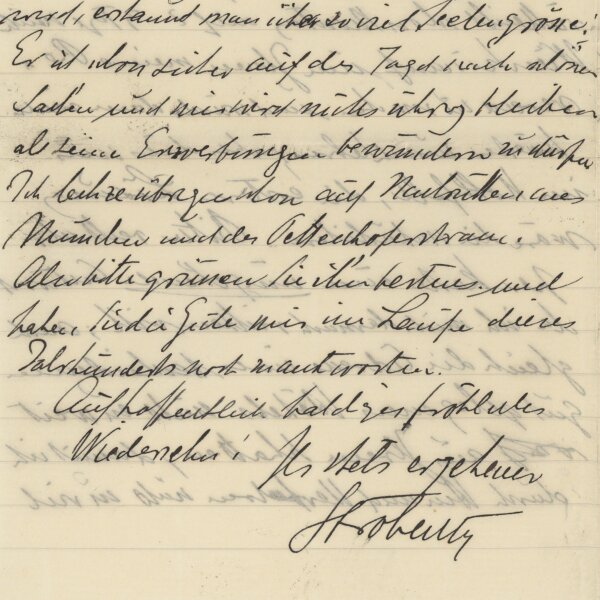 wird, erstaunt man über so viel Seelengrösse!
Er ist schon sicher auf der Jagd nach schönen
Sachen und mir wird nichts übrig bleiben
als seine Erwerbungen bewundern zu dürfen
Ich lechze übrigens schon auf Nachrichten aus
München und der Pettenkoferstrasse.
Also bitte grüssen Sie ihn bestens und
haben Sie die Güte mir im Laufe dieses
Jahrhunderts noch zu antworten.
Auf hoffentlich baldiges fröhliches
Wiedersehn! Ihr stets ergebener